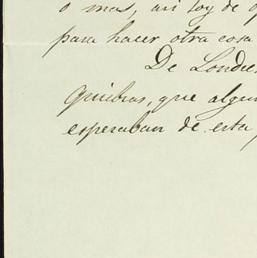 o mas, así soy de o
para hacer otra cosa
De Londre
Quiebras, que algun
esperaban de esta,